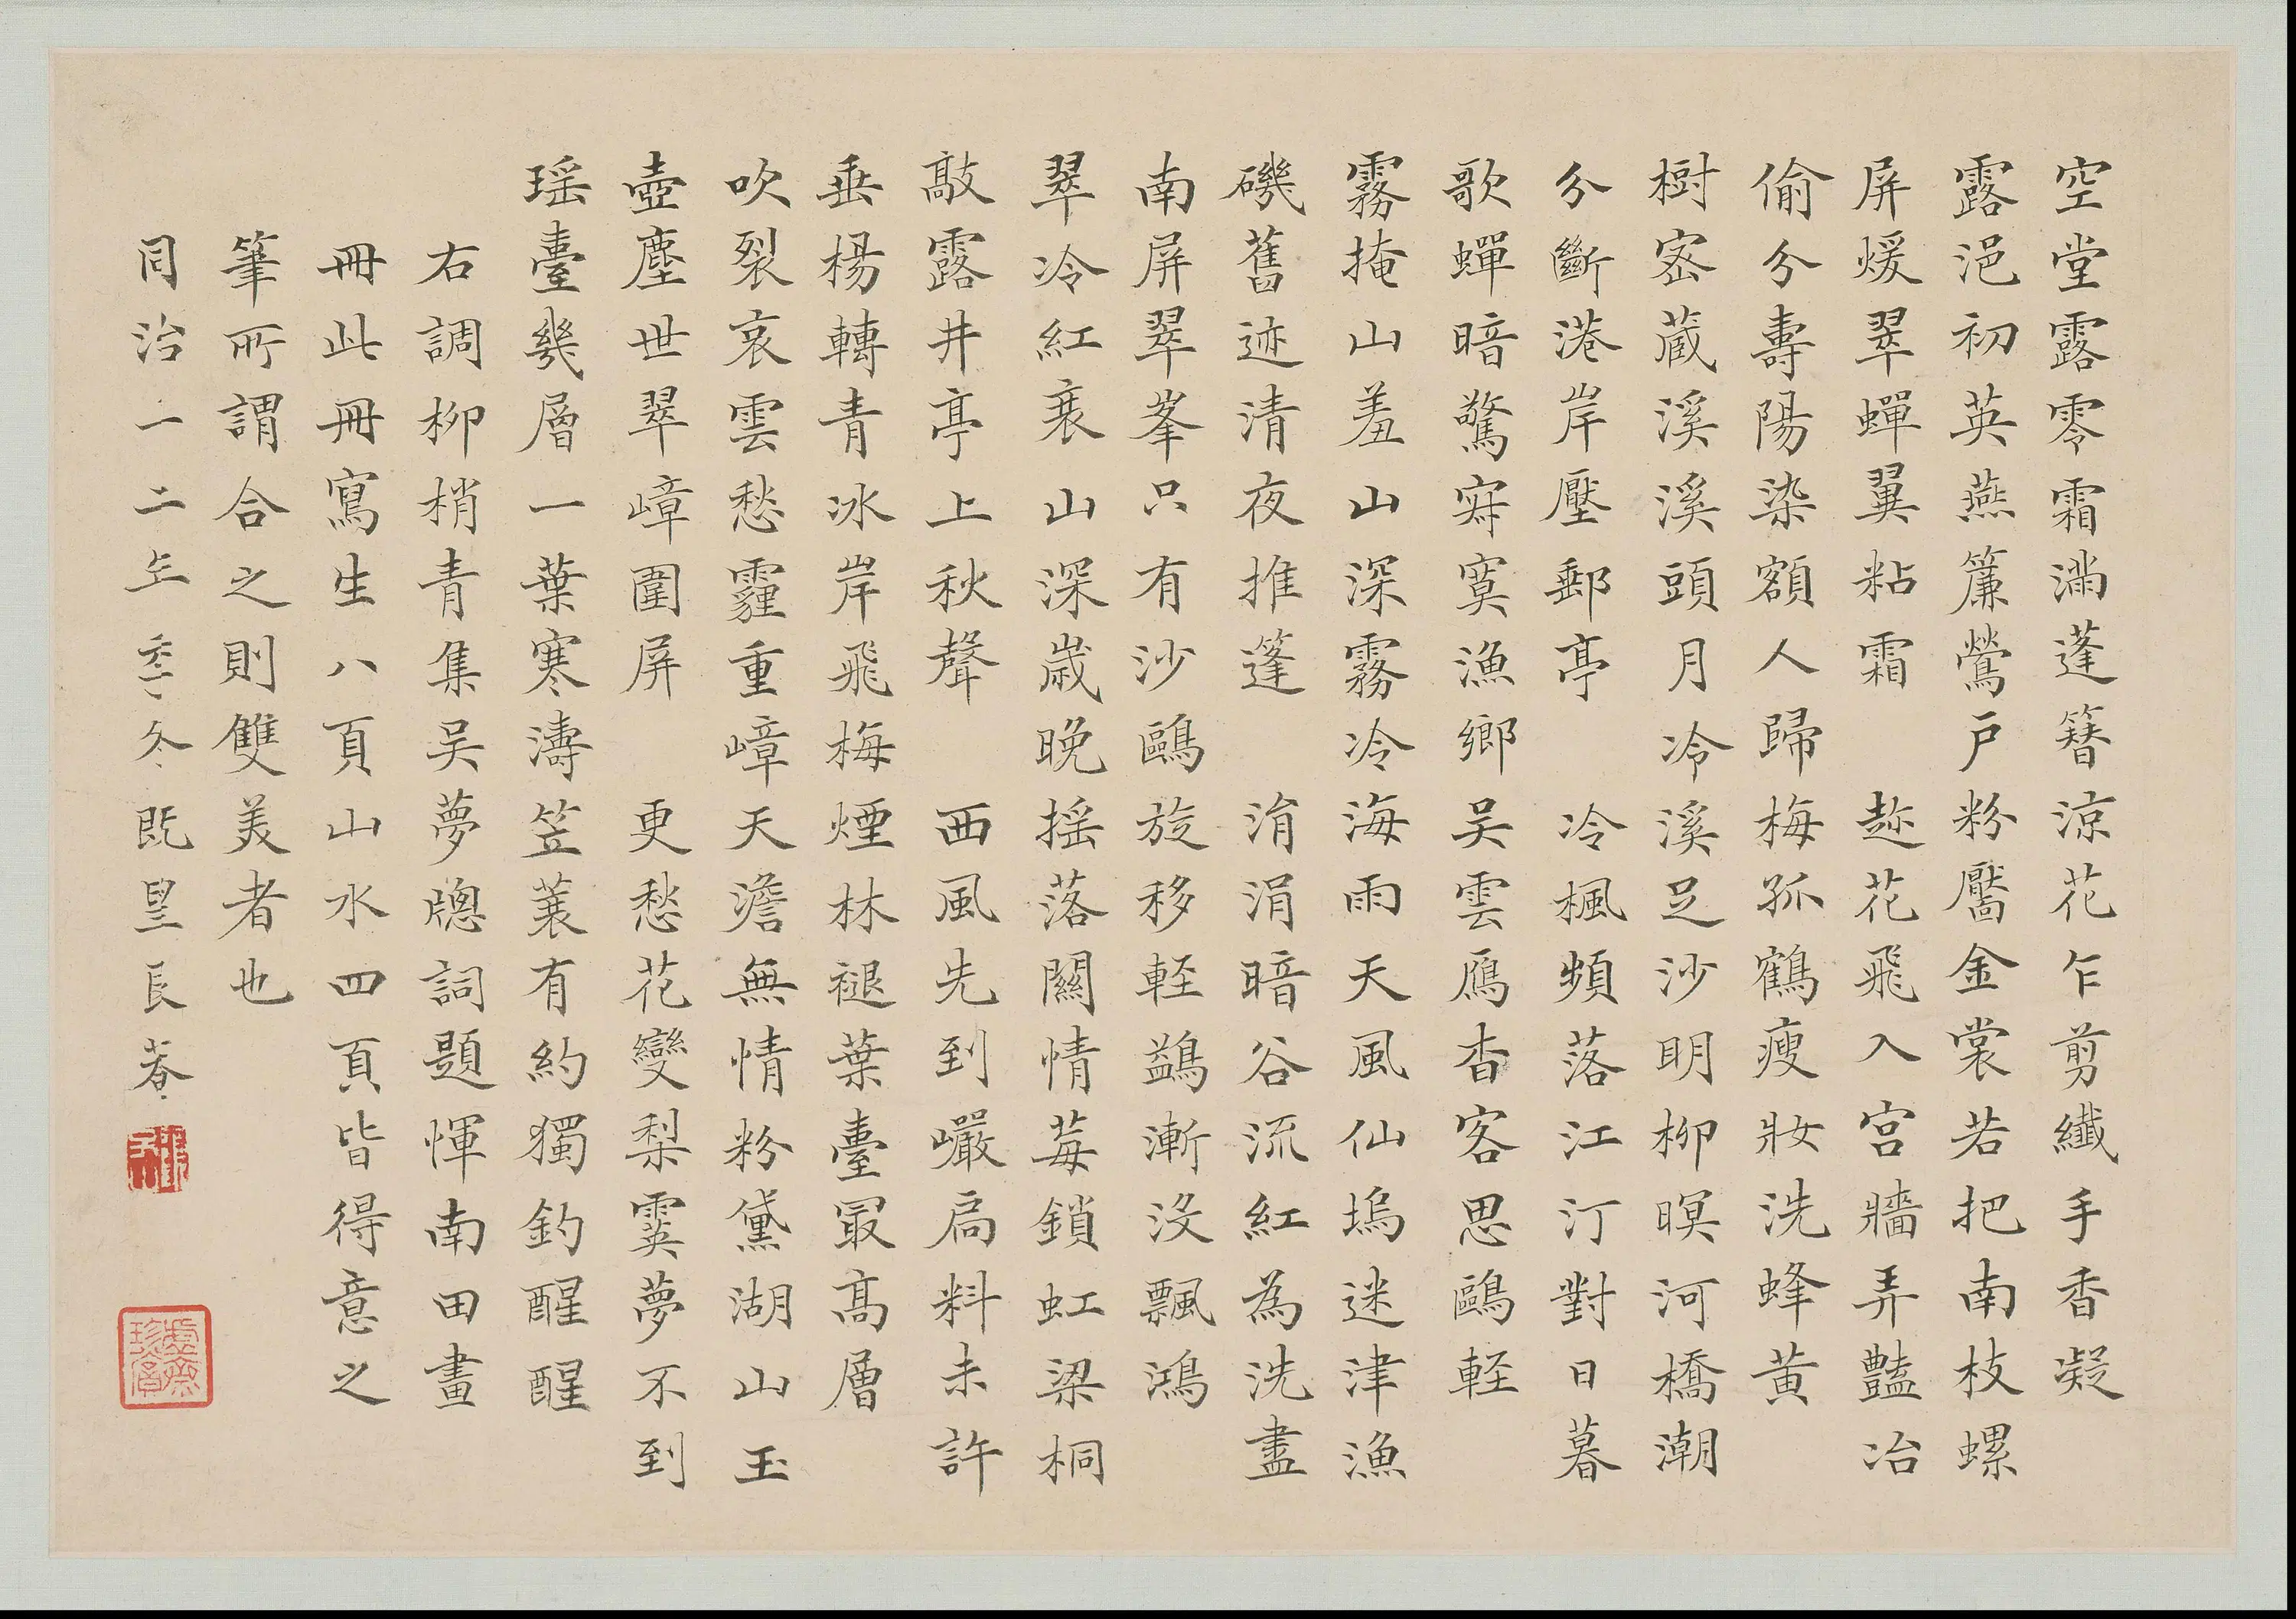 空堂露零霜滿蓬簪涼花乍剪纖手香凝
露浥初英燕簾鶯戶粉靨金裳若把南枝螺
屏煖翠蟬翼粘霜 趂花飛入宮牆弄豔冶
偷分壽陽染額人歸梅孤鶴瘦妝洗蜂黃
樹密蔵溪溪頭月冷溪足沙明柳暝河橋潮
分斷港岸壓郵亭 冷楓頻落江汀對日暮
歌蟬暗驚寂寞漁鄉吴雲鴈杳客思鷗輕
霧掩山羞山深霧冷海雨天風仙塢迷津漁
磯舊迹清夜推篷 涓涓暗谷流紅為洗盡
南屏翠峯只有沙鷗旋移輕鷁漸沒飄鴻
翠冷紅衰山深歲晚搖落關情莓鎖虹梁桐
敲露井亭上秋聲 西風先到巖扃料未許
垂楊轉青冰岸飛梅煙林褪葉臺冣高層
吹裂哀雲愁霾重嶂天澹無情粉黛湖山玉
壺塵世翠嶂圍屏 更愁花變梨霙夢不到
瑶臺幾層一葉寒濤笠蓑有約獨釣醒醒
右調柳梢青集吴夢牕詞題惲南田畫
冊此冊寫生八頁山水四頁皆得意之
筆所謂合之則雙美者也
同治一二年季冬既望艮菴
虛齋珍賞